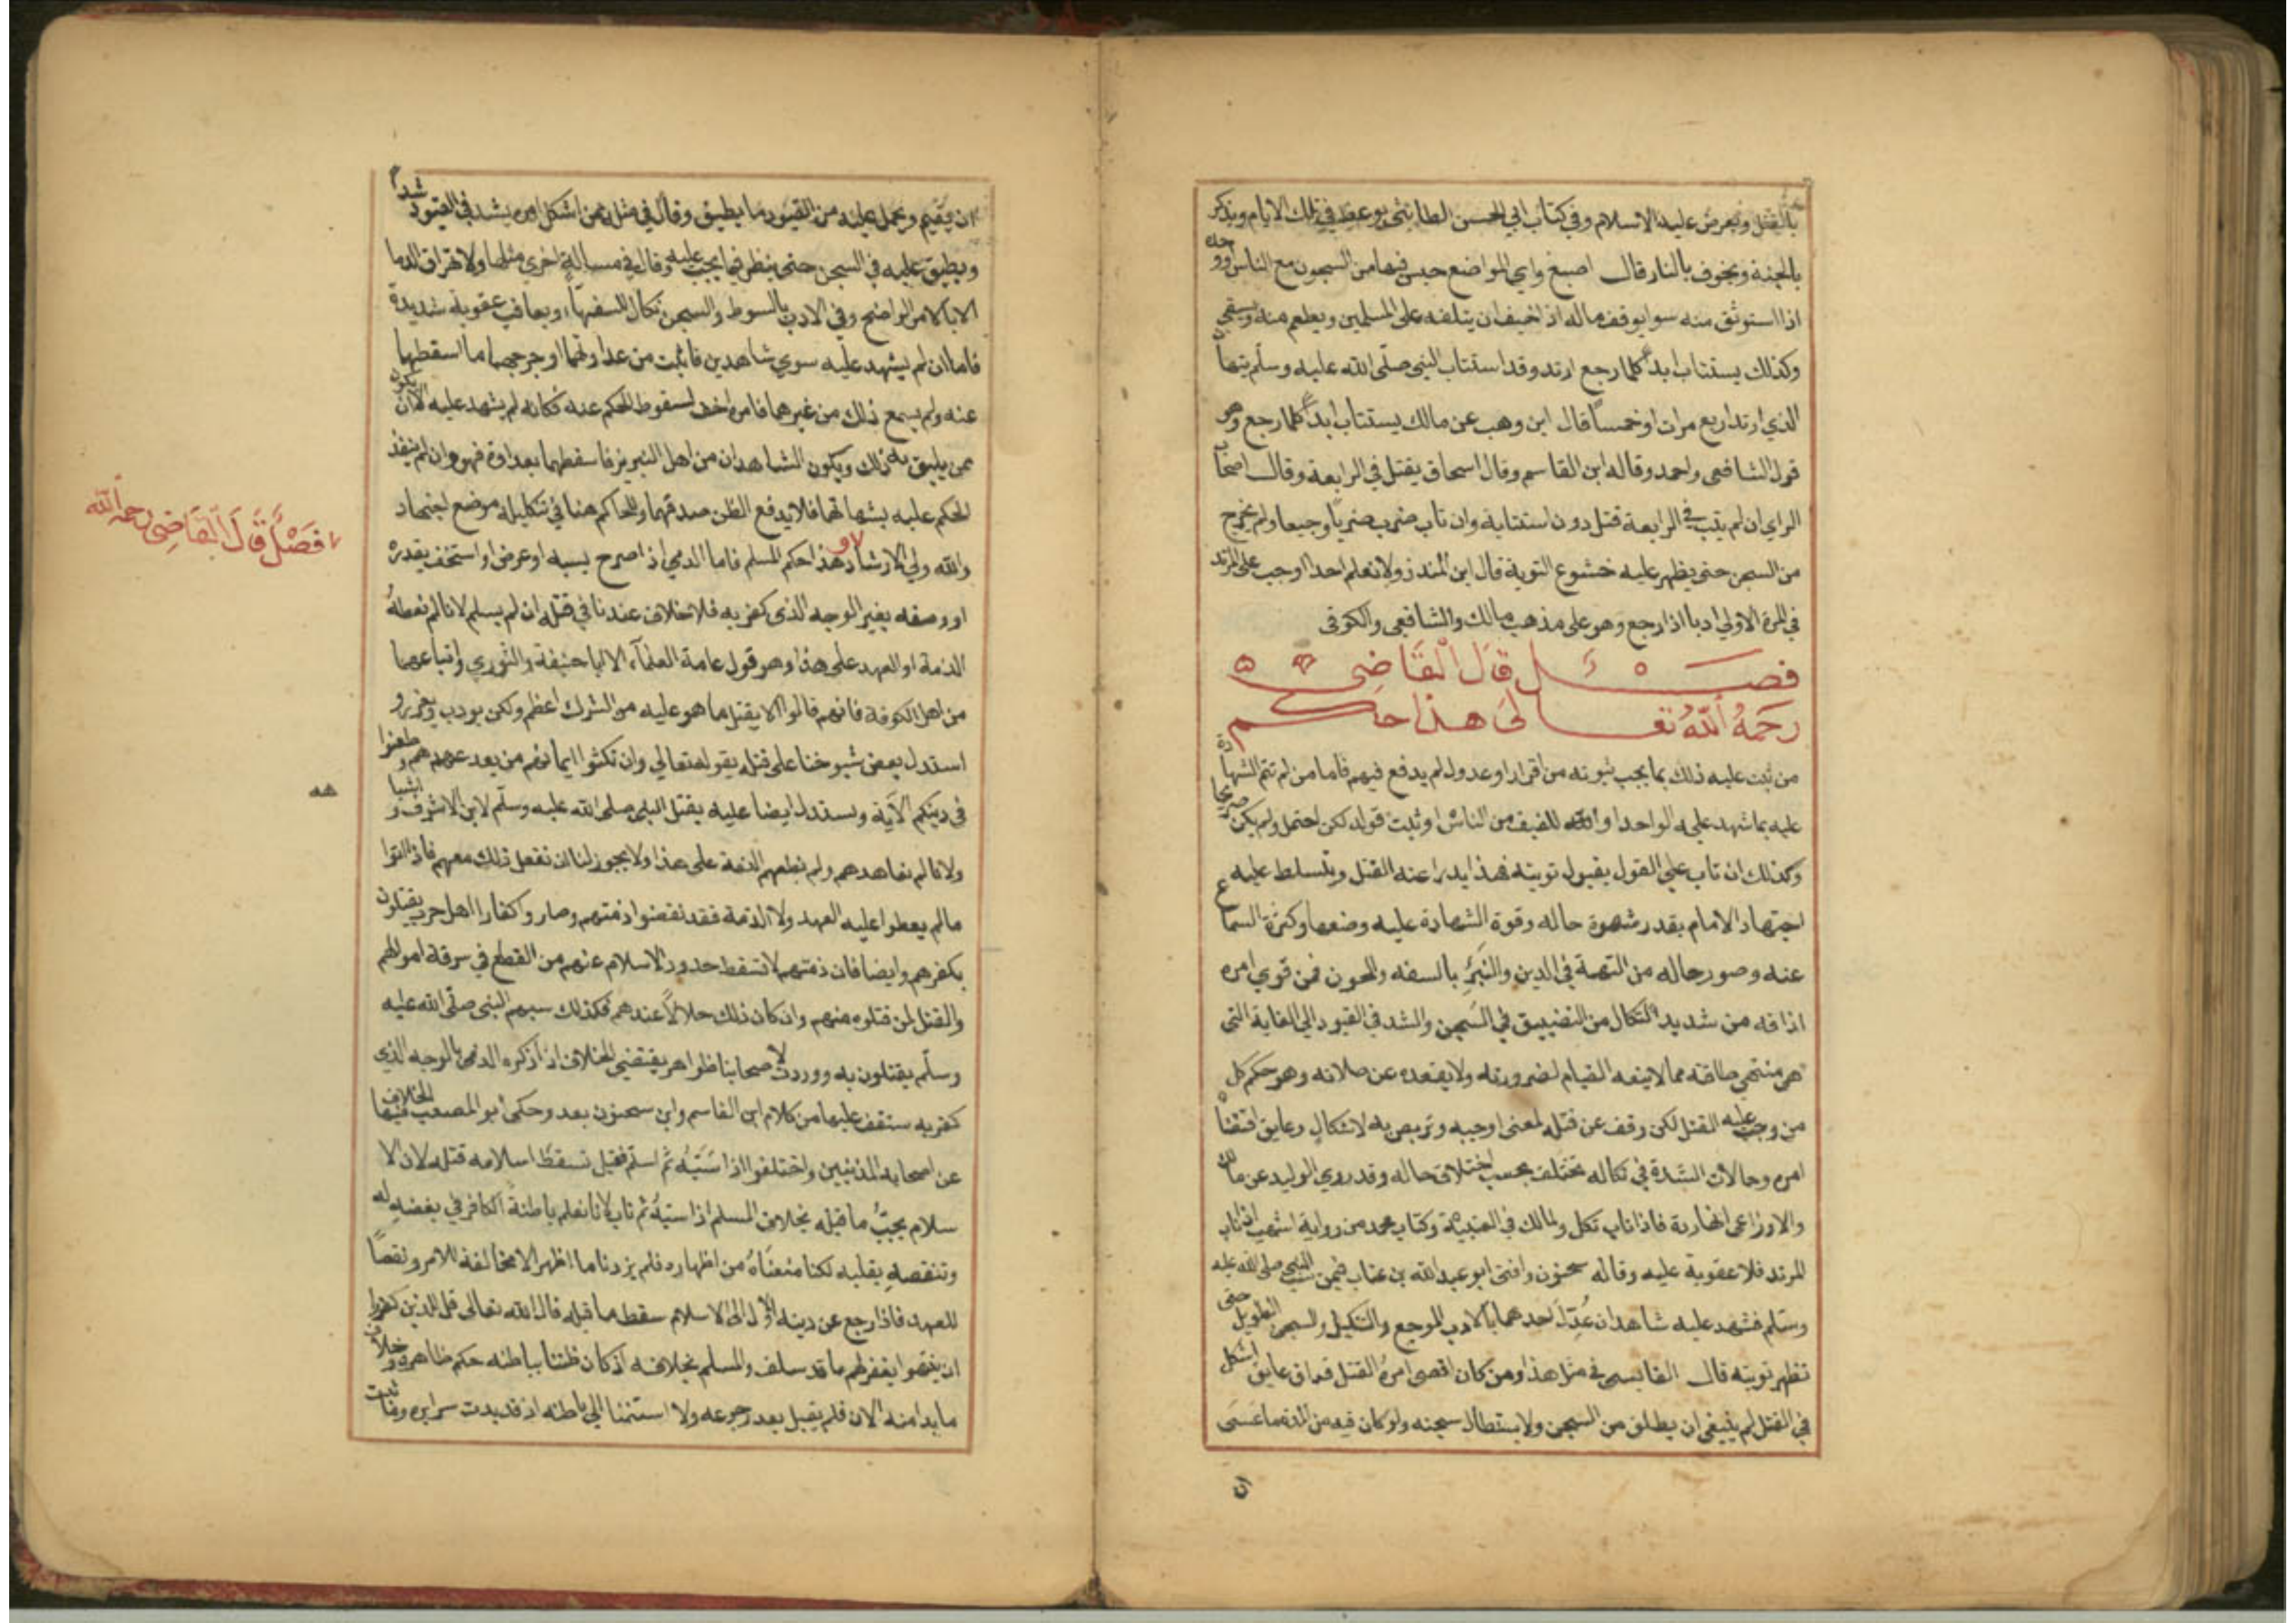 بالقتل ويعرض عليه الاسلام وفي كتاب ابي الحسن الطابثي يوعظ في تلك الايام ويذكر
بالجنة ويخوف بالنار قال اصبغ واي المواضع حبس فيها من السجون مع الناس او وحده
اذا استوثق منه سوا يوقف ماله اذا خيف ان يتلفه على المسلمين ويطعم منه ويسقي
وكذلك يستتاب ابدا كلما رجع ارتد وقد استتاب النبي صلى الله عليه وسلم نبهان
الذي ارتد اربع مرات او خمسا قال ابن وهب عن مالك يستتاب ابدا كلما رجع وهو
قول الشافعي واحمد وقاله ابن القاسم وقال اسحاق يقتل في الرابعة وقال اصحاب
الراي ان لم يتب في الرابعة قتل دون استتابة وان تاب ضرب ضربا وجيعا ولم يخرج
من السجن حتى يظهر عليه خشوع التوبة قال ابن المنذر ولا نعلم احدا اوجب على المرتد
في المرة الاولي ادبا اذا رجع وهو على مذهب مالك والشافعي والكوفي
فصل قال القاضي
رحمه الله تعالى هذا حكم
من ثبت عليه ذلك بما يجب ثبوته من اقرار او عدول لم يدفع فيهم فاما من لم تتم الشهادة
عليه بما شهد عليه الواحد او اللفيف من الناس او ثبت قوله لكن احتمل ولم يكن صريحا
وكذلك ان تاب علي القول بقبول توبته فهذا يدرا عنه القتل ويتسلط عليه
اجتهاد الامام بقدر شهرة حاله وقوة الشهادة عليه وضعفها وكثرة السماع
عنه وصور حاله من التهمة في الدين والنبز بالسفه والمجون فمن قوي امره
اذاقه من شديد النكال من التضييق في السجن والشد في القيود الي الغاية التي
هي منتهي طاقته مما لا يمنعه القيام لضرورته ولا يقعده عن صلاته وهو حكم كل
من وجب عليه القتل لكن وقف عن قتله لمعني اوجبه وتربص به لاشكال وعايق اقتضاه
امره وحالات الشدة في نكاله تختلف بحسب اختلاف حاله وقد روي الوليد عن مالك
والاوزاعي انها ردة فاذا تاب نكل ولمالك في العتبية وكتاب محمد من رواية اشهب اذا تاب
المرتد فلا عقوبة عليه وقاله سحنون وافتى ابو عبد الله بن عتاب فيمن سب النبي صلى الله عليه
وسلم فشهد عليه شاهدان عدل احدهما بالادب الموجع والتنكيل والسجن الطويل حتى
تظهر توبته قال القابسي في مثل هذا ومن كان اقصى امره القتل فعاق عايق اشكل
في القتل لم ينبغي ان يطلق من السجن ولا يستطال سجنه ولو كان فيه من المدة ما عسى
ان
ان يقيم ويحمل عليه من القيود ما يطيق وقال في مثله ممن اشكل امره يشد في القيود شدا
ويضيق عليه في السجن حتى ينظر فيما يجب عليه وقال في مسالة اخري مثلها ولا تهراق الدما
الا بالامر الواضح وفي الادب بالسوط والسجن نكال للسفهاء ويعاقب عقوبة شديدة
فاما ان لم يشهد عليه سوي شاهدين فاثبت من عداوتهما او جرحهما ما اسقطهما
عنه ولم يسمع ذلك من غيرهما فامره اخف لسقوط الحكم عنه فكانه لم يشهد عليه الا ان يكون
ممن يليق به ذلك ويكون الشاهدان من اهل التبريز فاسقطهما بعداوة فهو وان لم ينفذ
الحكم عليه بشهادتهما فلا يدفع الظن صدقهما وللحاكم هنا في تنكيله موضع اجتهاد
والله ولي الارشاد هذا حكم المسلم فاما الذمي اذا صرح بسبه او عرض او استخف بقدره
او وصفه بغير الوجه الذي كفر به فلا خلاف عندنا في قتله ان لم يسلم لانا لم نعطه
الذمة او العهد على هذا وهو قول عامة العلماء الا ابا حنيفة والثوري واتباعهما
من اهل الكوفة فانهم قالوا لا يقتل ما هو عليه من الشرك اعظم ولكن يودب ويعزر و
استدل بعض شيوخنا على قتله بقوله تعالي وان نكثوا ايمانهم من بعد عهدهم وطعنوا
في دينكم الاية ويستدل ايضا عليه بقتل النبي صلى الله عليه وسلم لابن الاشرف و اشباهه
ولانا لم نعاهدهم ولم نعطهم الذمة على هذا ولا يجوز لنا ان نفعل ذلك معهم فاذا اتوا
مالم يعطوا عليه العهد ولا الذمة فقد نقضوا ذمتهم وصاروا كفارا اهل حرب يقتلون
بكفرهم وايضا فان ذمتهم لا تسقط حدود الاسلام عنهم من القطع في سرقة اموالهم
والقتل لمن قتلوه منهم وان كان ذلك حلالا عندهم فكذلك سبهم النبي صلى الله عليه
وسلم يقتلون به ووردت لاصحابنا ظواهر يقتضي الخلاف اذا ذكره الذمي بالوجه الذي
كفر به ستقف عليها من كلام ابن القاسم وابن سحنون بعد وحكى ابو المصعب الخلاف فيها
عن اصحابه المدنيين واختلفوا اذا سبه ثم اسلم فقيل تسقط اسلامه قتله لان الا
سلام يجب ما قبله بخلاف المسلم اذا سبه ثم تاب لانا نعلم باطنة الكافر في بغضه له
وتنقصه بقلبه لكنا منعناه من اظهاره فلم يزدنا ما اظهر الا مخالفة للامر ونقضا
للعهد فاذا رجع عن دينه الاول الى الاسلام سقط ما قبله قال الله تعالى قل للذين كفروا
ان ينتهوا يغفر لهم ما قد سلف والمسلم بخلافه اذ كان ظننا بباطنه حكم ظاهره وخلاف
ما بدا منه الان فلم يقبل بعد رجوعه ولا استنمنا الي باطنه اذ قد بدت سرايره وما ثبت
فصل قال القاضي رحمه الله